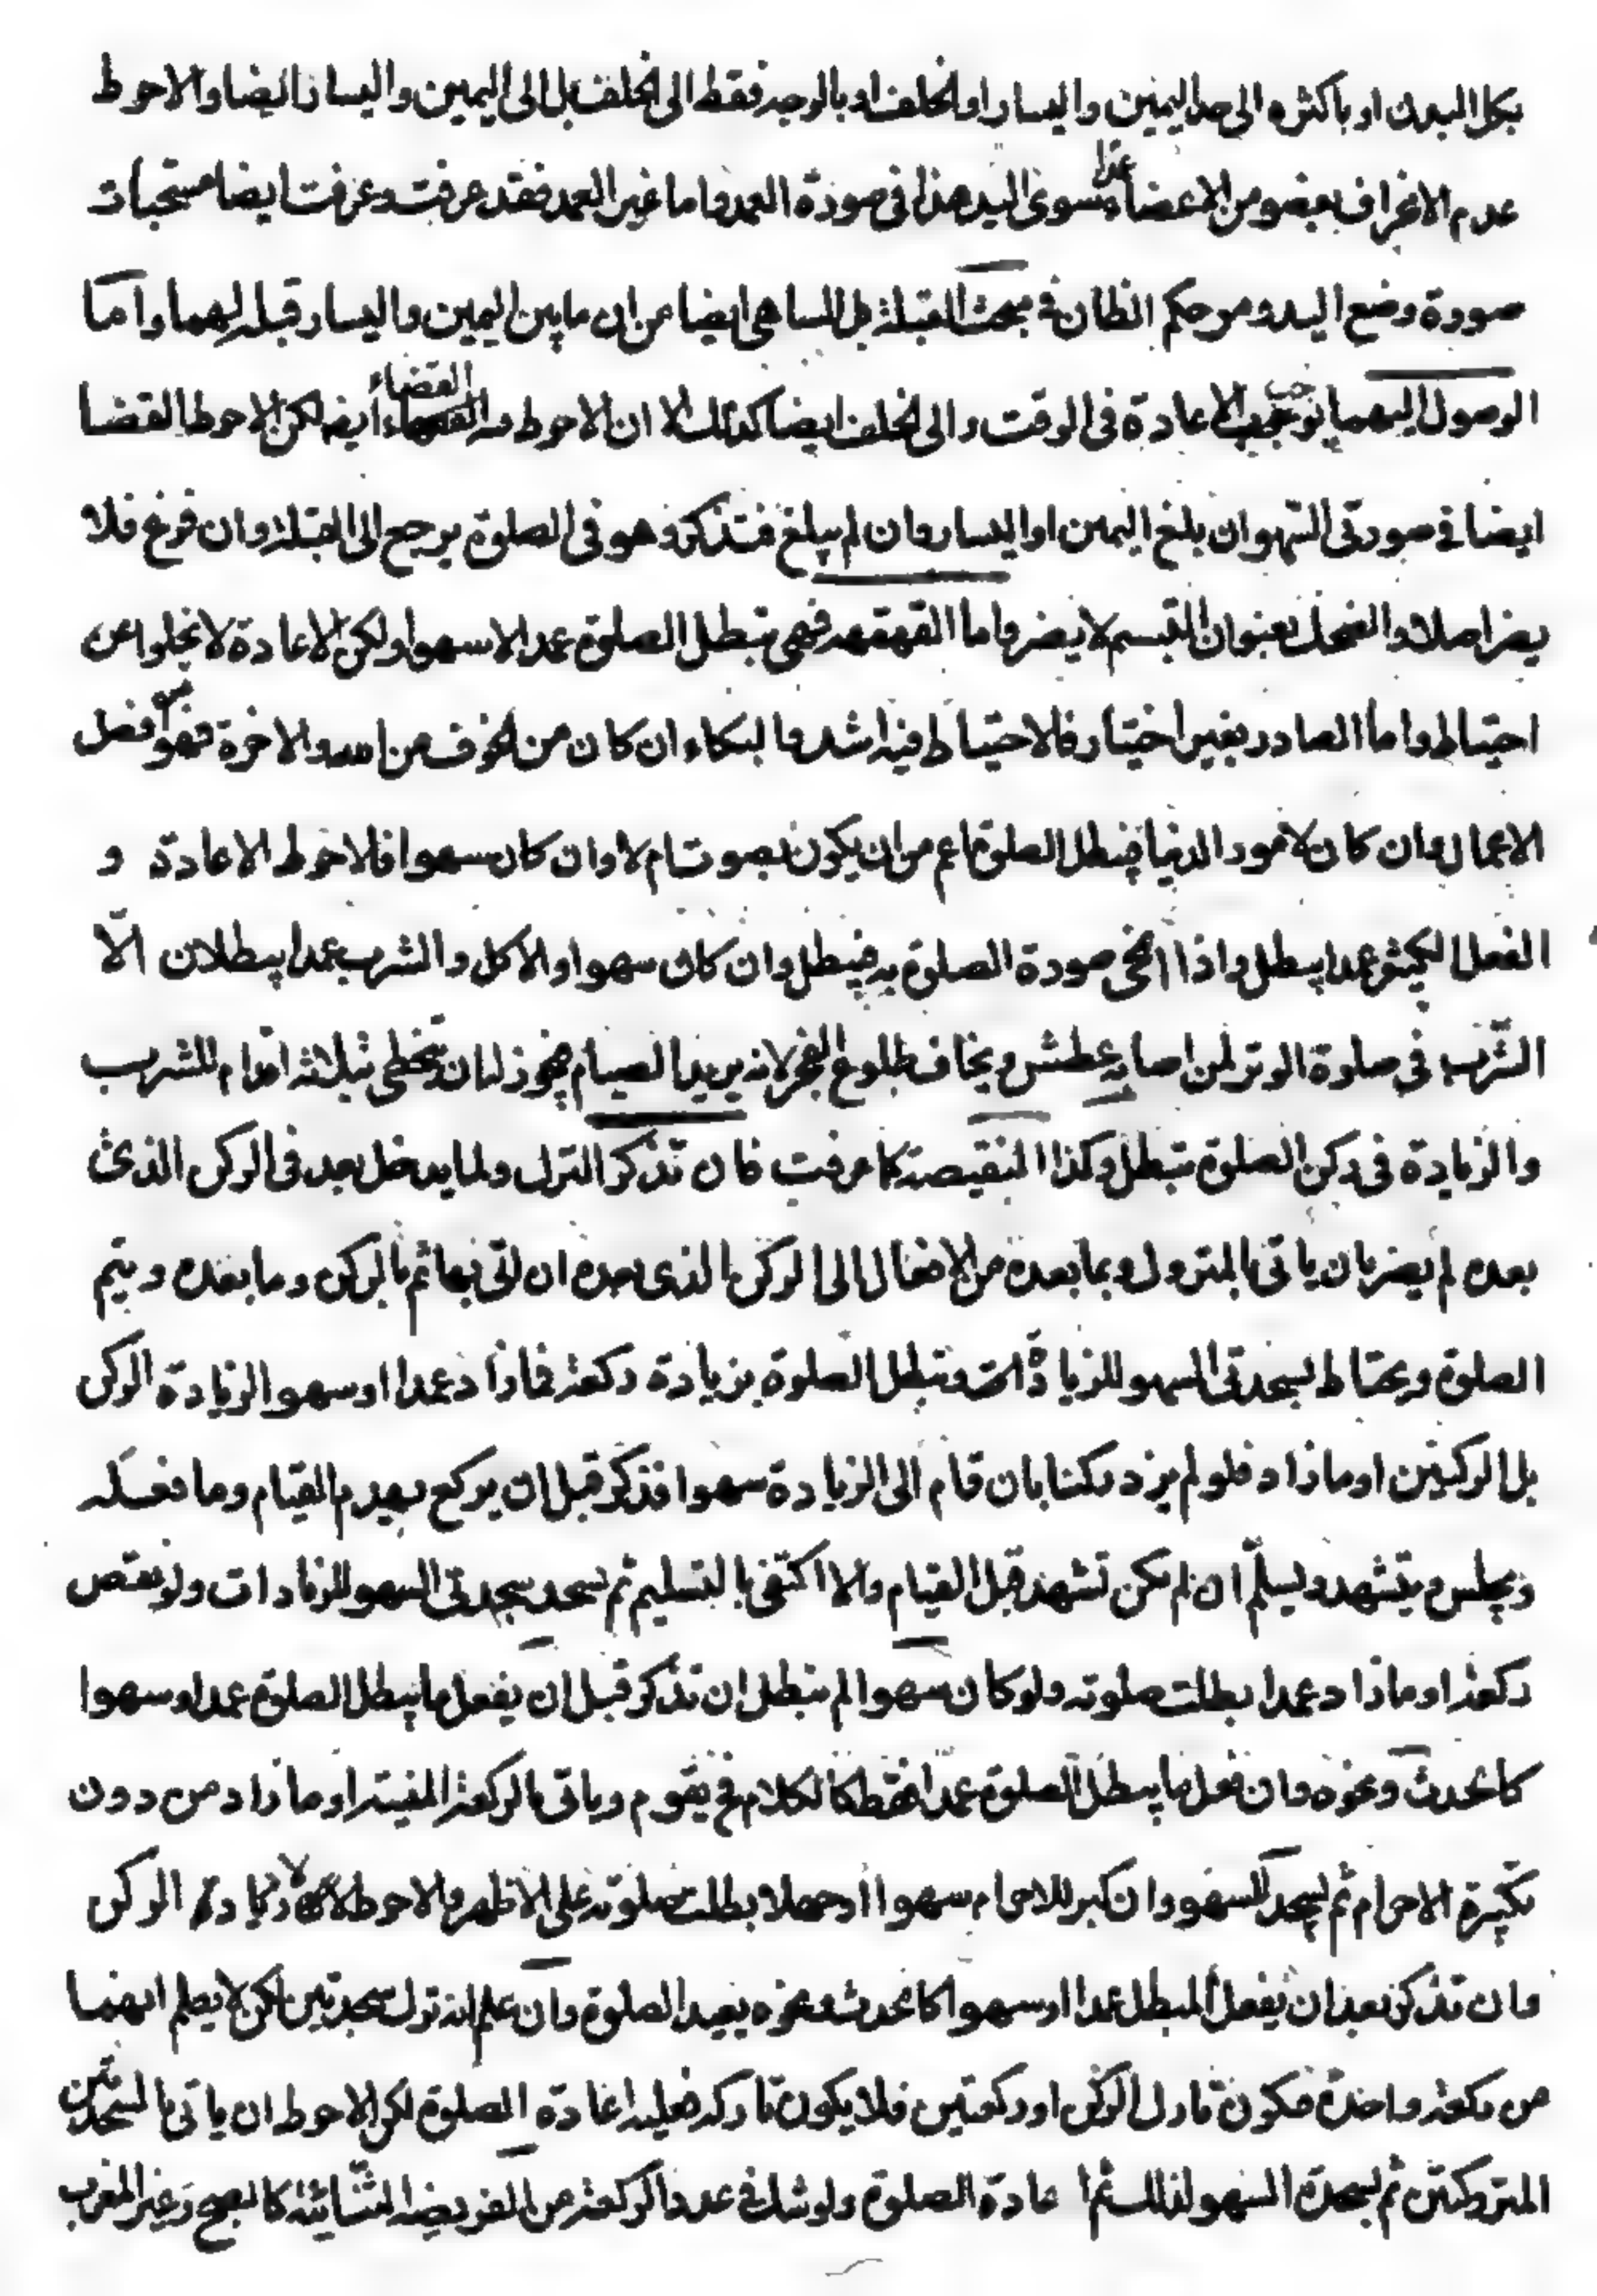 بكل البدن او باكثره الى حد اليمين واليسار او الخلف او بالوجه فقط الى الخلف بل الى اليمين واليسار ايضا والاحوط
عدم الانحراف بعضو من الاعضاء عمدا سوى اليد هذا فى صورة العمد واما غير العمد فقد عرفت وعرفت ايضا مستحبات
صورة وضع اليد ومر حكم الظان فى مبحث القبلة بل الساهى ايضا من ان ما بين اليمين واليسار قبلة لهما واما
الوصول اليهما يوجب الاعادة فى الوقت والى الخلف ايضا كذلك الا ان الاحوط فيه القضاء ايضا لكن الاحوط القضا
ايضا فى صورتى السهو ان بلغ اليمين او اليسار وان لم يبلغ فتذكر وهو فى الصلوة يرجع الى القبلة وان فرغ فلا
يضر اصلا والضحك بعنوان التبسم لا يضر واما القهقهه فهى تبطل الصلوة عمدا لا سهوا ولكن الاعادة لا تخلوا عن
احتياط واما الصادر بغير اختيار فالاحتياط فيه اشد والبكاء ان كان من الخوف من الله والاخرة فهو من افضل
الاعمال وان كان لامور الدنيا فيبطل الصلوة اعم من ان يكون بصوت ام لا وان كان سهوا فالاحوط الاعادة و
الفعل الكثير عمدا يبطل واذا انمحى صورة الصلوة به فيبطل وان كان سهوا والاكل والشرب عمدا يبطلان الّا
الشّرب فى صلوة الوتر لمن اصابه عطش ويخاف طلوع الفجر لانه يريد الصيام فيجوز له ان يتخطى بثلاثة اقدام للشرب
والزيادة فى ركن الصلوة تبطل وكذا النقيصة كما عرفت فان تذكر الترك ولما يدخل بعد فى الركن الذى
بعده لم يضر بان ياتى بالمتروك وبما بعده من الافعال الى الركن الذى بعده ان اتى بها ثم بالركن وما بعده ويتم
الصلوة ويحتاط بسجدتى السهو للزيادات وتبطل الصلوة بزيادة ركعة فاذا زاد عمدا او سهوا لزيادة الركن
بل الركنين او ما زاد فلو لم يزد ركنا بان قام الى الزيادة سهوا فذكر قبل ان يركع يهدم القيام وما فعله
ويجلس ويتشهد ويسلّم ان لم يكن تشهد قبل القيام والا اكتفى بالتسليم ثم يسجد سجدتى السهو للزيادات ولو نقص
ركعة او ما زاد عمدا بطلت صلوته ولو كان سهوا لم تبطل ان تذكر قبل ان يفعل ما يبطل الصلوة عمدا وسهوا
كالحدث ونحوه وان فعل ما يبطل الصلوة عمدا فقط كالكلام فح يقوم وياتى بالركعة المنسية او ما زاد من دون
تكبيرة الاحرام ثم يسجد للسهو وان كبر للاحرام سهوا او جهلا بطلت صلوته على الاظهر والاحوط لا زيادة الركن
وان تذكر بعد ان يفعل المبطل عمدا او سهوا كالحدث ونحوه يعيد الصلوة وان علم انه ترك سجدتين لكن لا يعلم انهما
من ركعة واحدة فيكون تارك الركن او ركعتين فلا يكون تاركه فعليه اعادة الصلوة لكن الاحوط ان ياتى بالسجدتين
المتروكتين ثم بسجدة السهو لذلك ثم اعادة الصلوة ولو شك فى عدد الركعة من الفريضة الثنائية كالصبح وغير المغرب